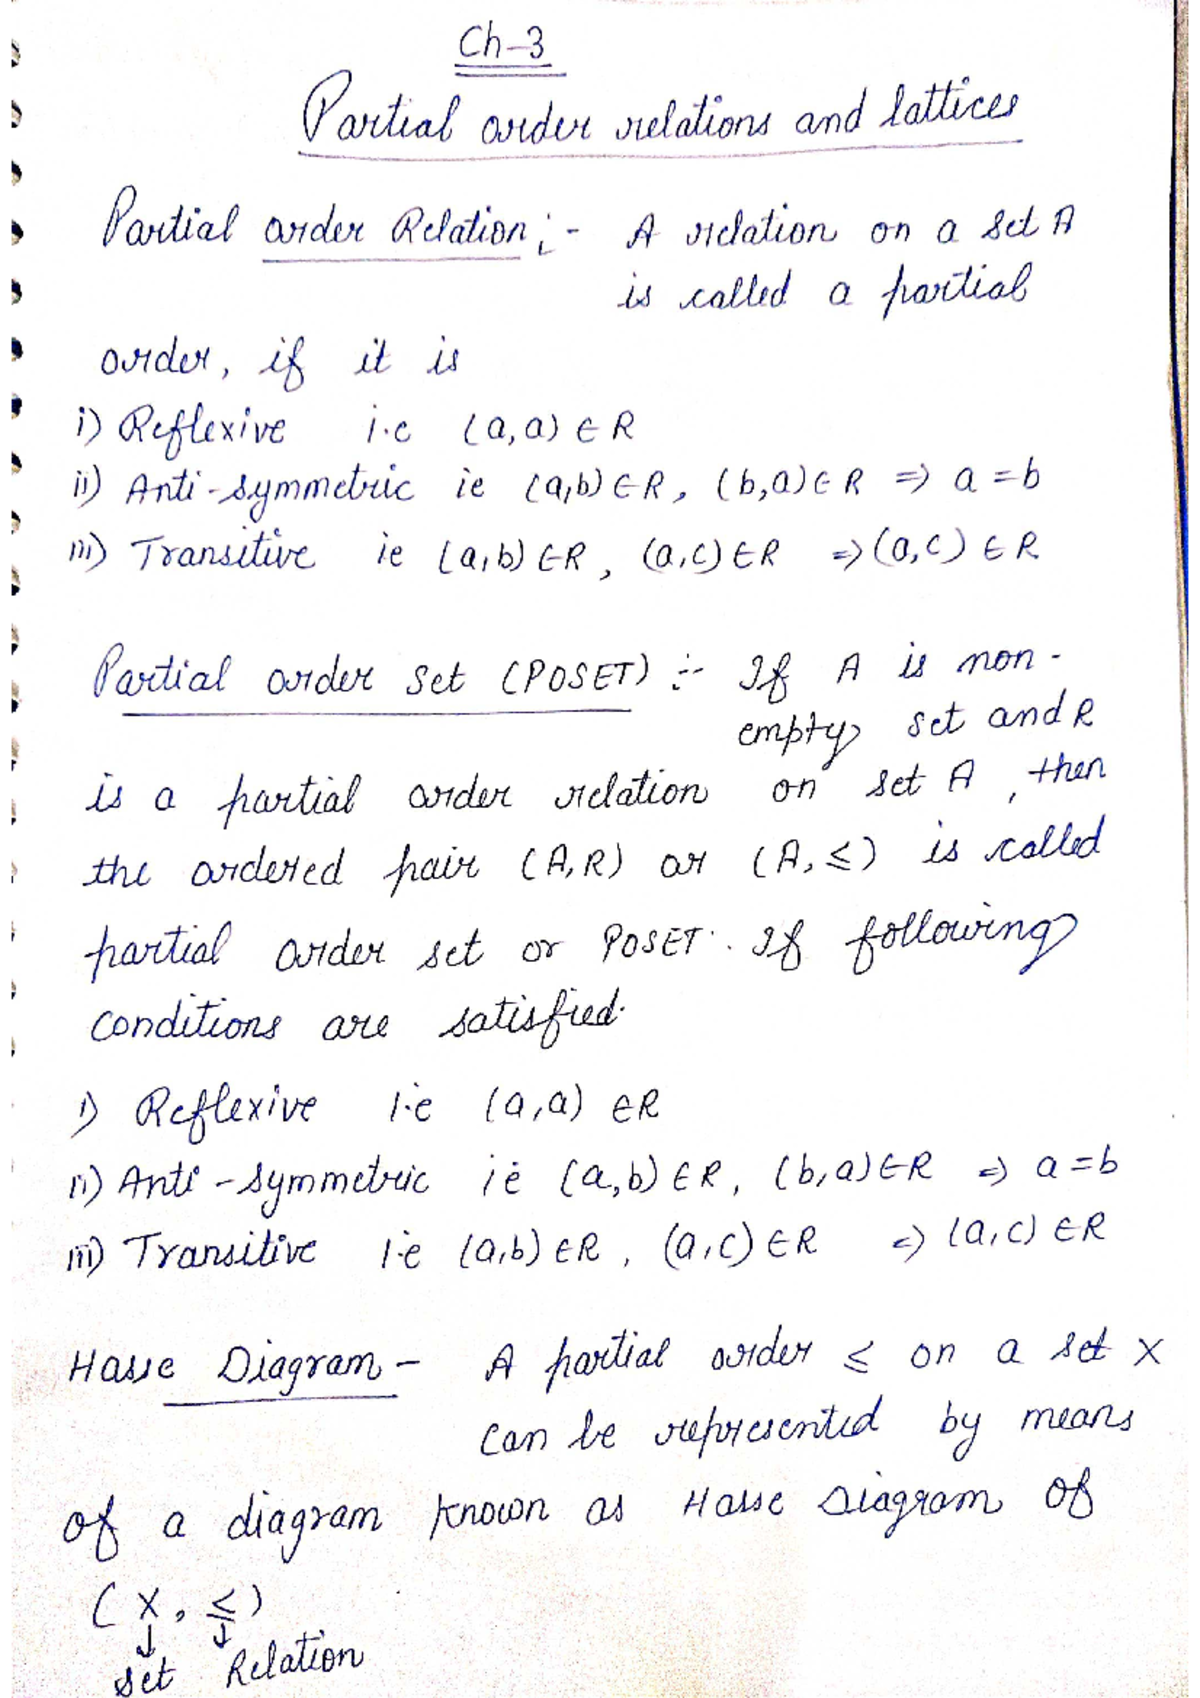 Ch-3
Partial order relations and lattices
Partial order Relation :- A relation on a set A
is called a partial
order, if it is
i) Reflexive i.e (a,a) ∈ R
ii) Anti-symmetric ie (a,b) ∈ R, (b,a) ∈ R ⇒ a = b
iii) Transitive ie (a,b) ∈ R, (a,c) ∈ R ⇒ (a,c) ∈ R
Partial order set (POSET) :- If A is non-
empty set and R
is a partial order relation on set A, then
the ordered pair (A,R) or (A,≤) is called
partial order set or POSET. If following
conditions are satisfied.
i) Reflexive i.e (a,a) ∈ R
ii) Anti-symmetric ie (a,b) ∈ R, (b,a) ∈ R ⇒ a = b
iii) Transitive i.e (a,b) ∈ R, (a,c) ∈ R ⇒ (a,c) ∈ R
Hasse Diagram - A partial order ≤ on a set X
can be represented by means
of a diagram known as Hasse Diagram of
(X, ≤)
↓ ↓
set Relation